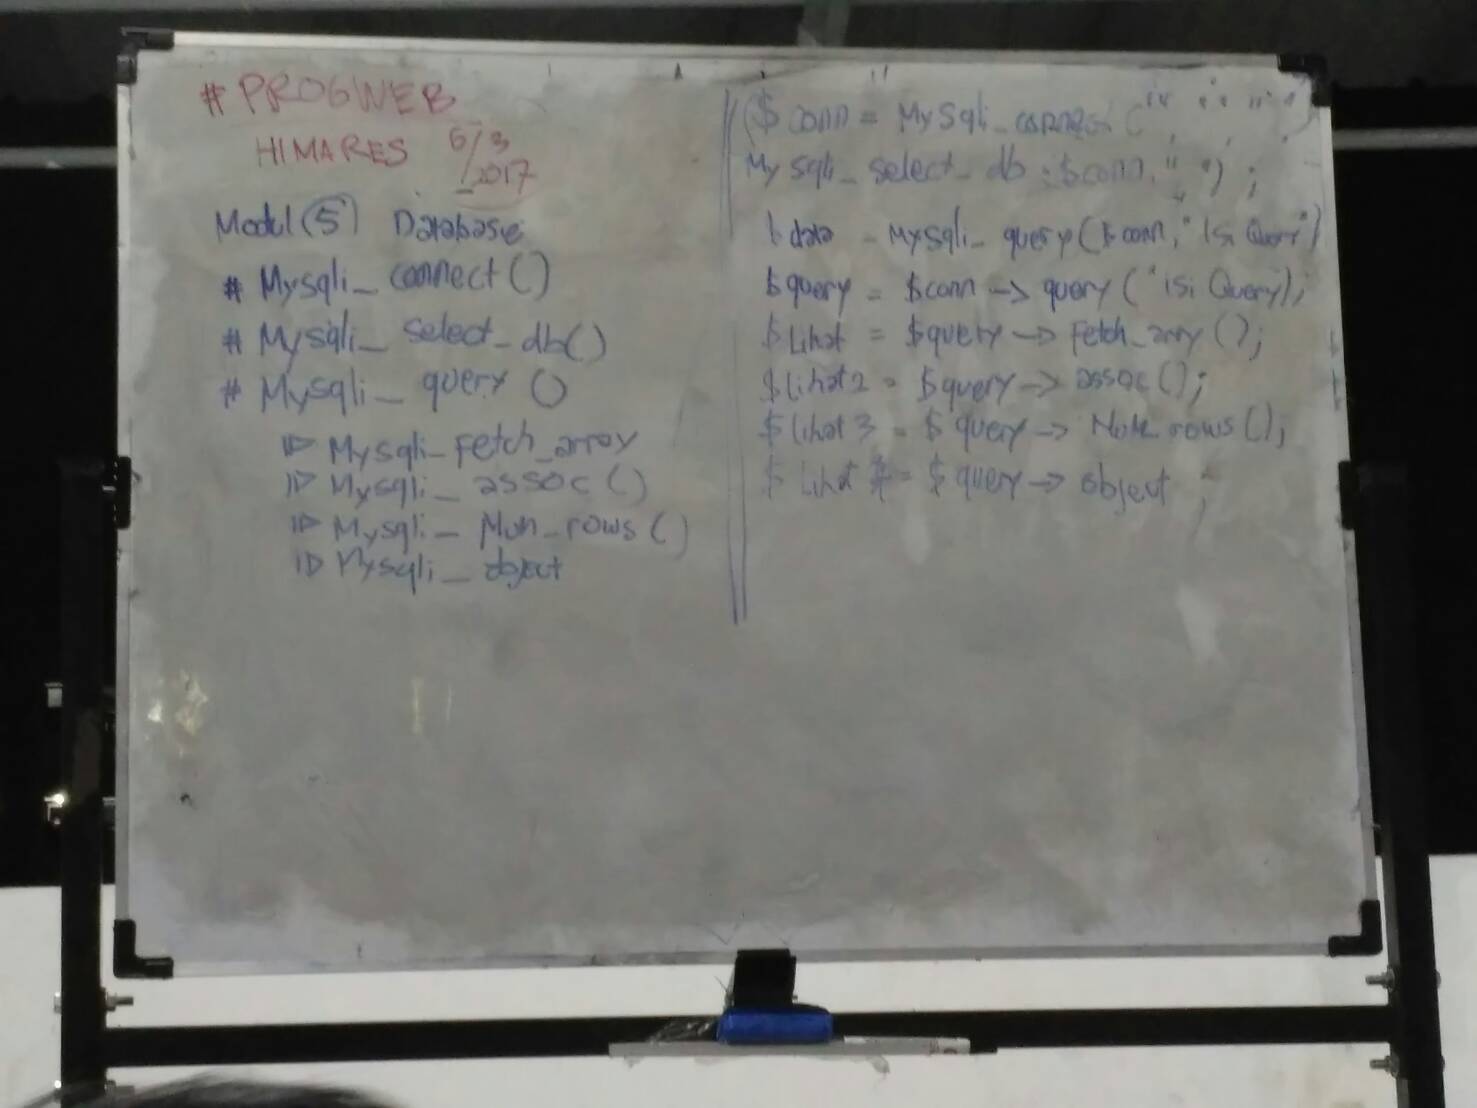 # PROGWEB
HIMARES 6/3/2017
Modul (5) Database
# Mysqli_ connect ()
# Mysqli_ select_db()
# Mysqli_ query ()
ID Mysqli_Fetch_array
ID Mysqli_ assoc ()
ID Mysqli_ Num_rows ()
ID Mysqli_ object
($ conn = MySqli_connect ("", "", "", "")
Mysqli_ select_ db $conn, " ");
$ data = Mysqli_ query ($conn, "Isi Query")
$query = $conn -> query ("isi Query);
$Lihat = $query -> Fetch_arry ();
$Lihat2 = $query -> assoc ();
$Lihat 3 = $ query -> Num_rows ();
$ Lihat = $ query -> object ;